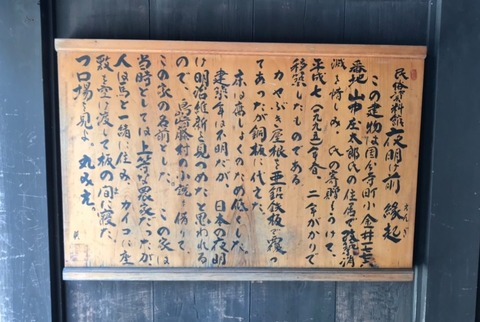 民俗資料館 夜明け前 縁起
この建物は国分寺町小金井七
番地 山中左太郎氏の住居で
滅を惜しみ、氏の寄贈をうけて、
平成七(一九九五)年春、二年がかりで
移築したものである。
かやぶき屋根を亜鉛鉄板で覆っ
てあったが銅板に代えた。
床は痛しょくのため修した。
建築年は不明だが、日本の夜明
け明治維新を見つめたと思われる
ので、島崎藤村の小説に
この家の名前とした。この家は
当時としては上等な農家だったが
人は馬と一緒に住み、カイコに座
敷を空け渡して板の間に寝た。
つロ場を見よ。